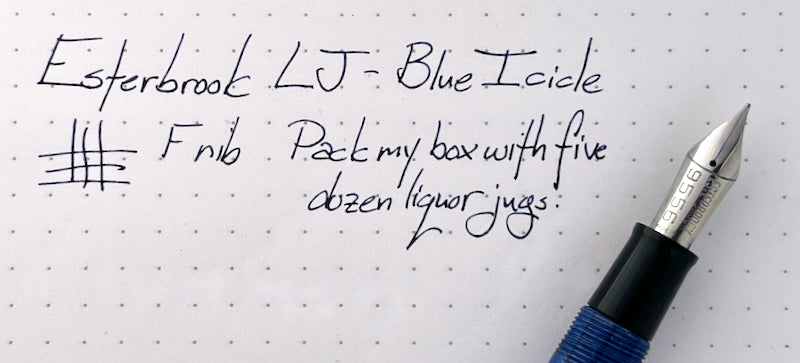 Esterbrook LJ - Blue Icicle
F nib Pack my box with five
dozen liquor jugs.
ESTERBROOK
9556